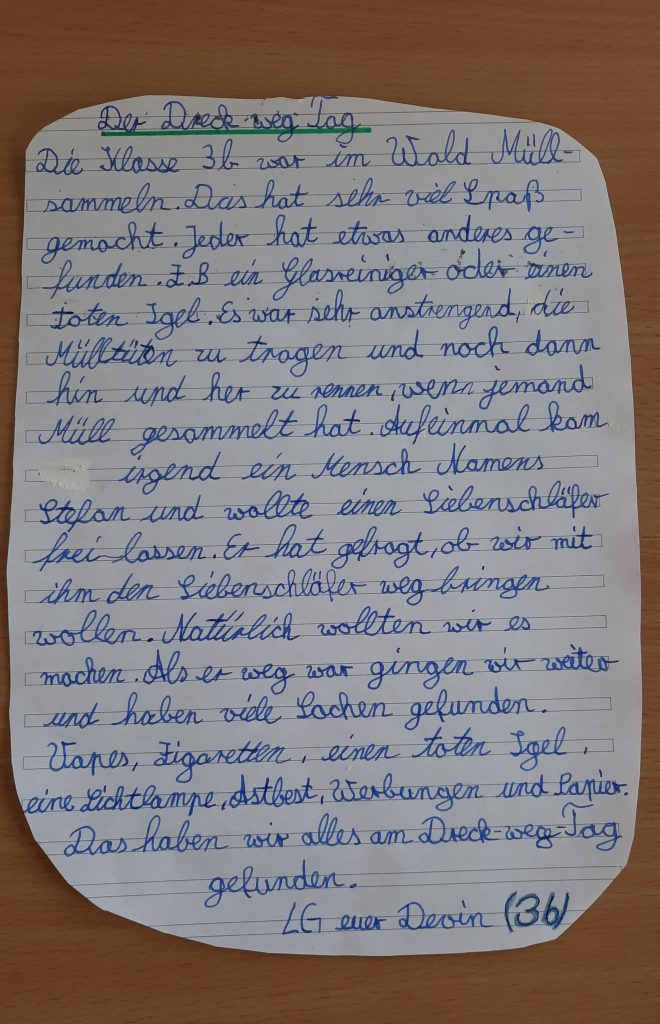 Der Dreck weg Tag
Die Klasse 3b war im Wald Müll-
sammeln. Das hat sehr viel Spaß
gemacht. Jeder hat etwas anderes ge-
funden. Z.B ein Glasreiniger oder einen
toten Igel. Es war sehr anstrengend, die
Mülltüten zu tragen und noch dann
hin und her zu rennen, wenn jemand
Müll gesammelt hat. Aufeinmal kam
irgend ein Mensch Namens
Stefan und wollte einen Siebenschläfer
frei lassen. Er hat gefragt, ob wir mit
ihm den Siebenschläfer weg bringen
wollen. Natürlich wollten wir es
machen. Als er weg war gingen wir weiter
und haben viele Sachen gefunden.
Vapes, Zigaretten, einen toten Igel,
eine Lichtlampe, Astbest, Werbungen und Papier.
Das haben wir alles am Dreck-weg-Tag
gefunden.
LG euer Devin (3b)